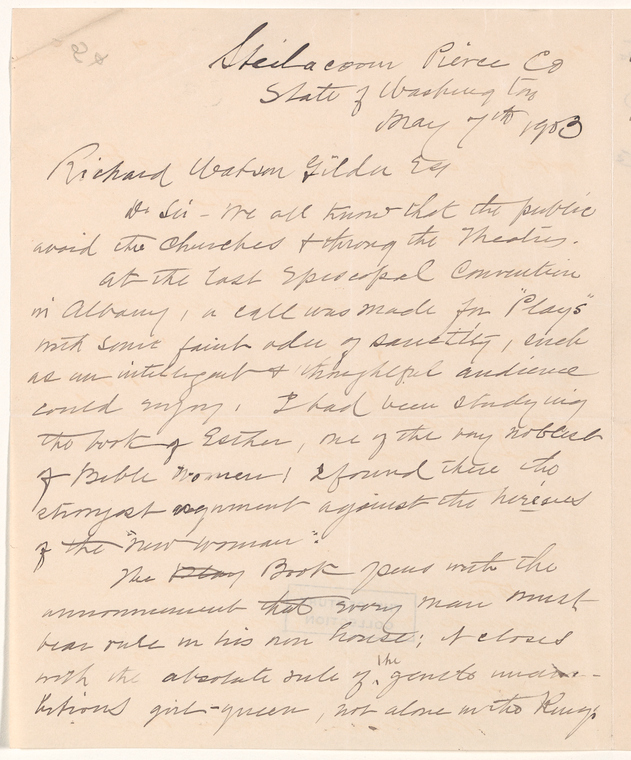 Steilacoom Pierce Co
State of Washington
May 7th 1903
Richard Watson Gilder Esq
Dr Sir - We all know that the public
avoid the Churches & throng the Theatres.
At the last Episcopal Convention
in Albany, a call was made for "Plays"
with some faint odor of sanctity, such
as an intelligent & thoughtful audience
could enjoy. I had been studying
the book of Esther, one of the very noblest
of Bible women; I found there the
strongest argument against the heresies
of the "new woman".
The Play Book opens with the
announcement that every man must
bear rule in his own house; it closes
with the absolute rule of the gentle unam-
bitious girl-queen, not alone in the King's